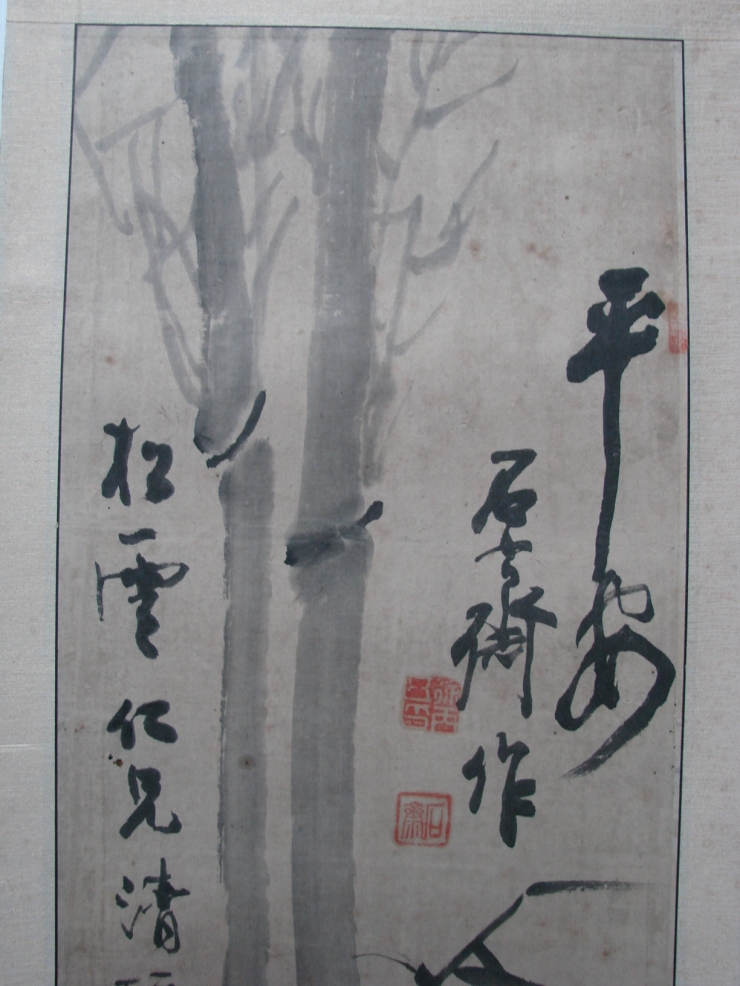 平安
石齋作
松雲仁兄清